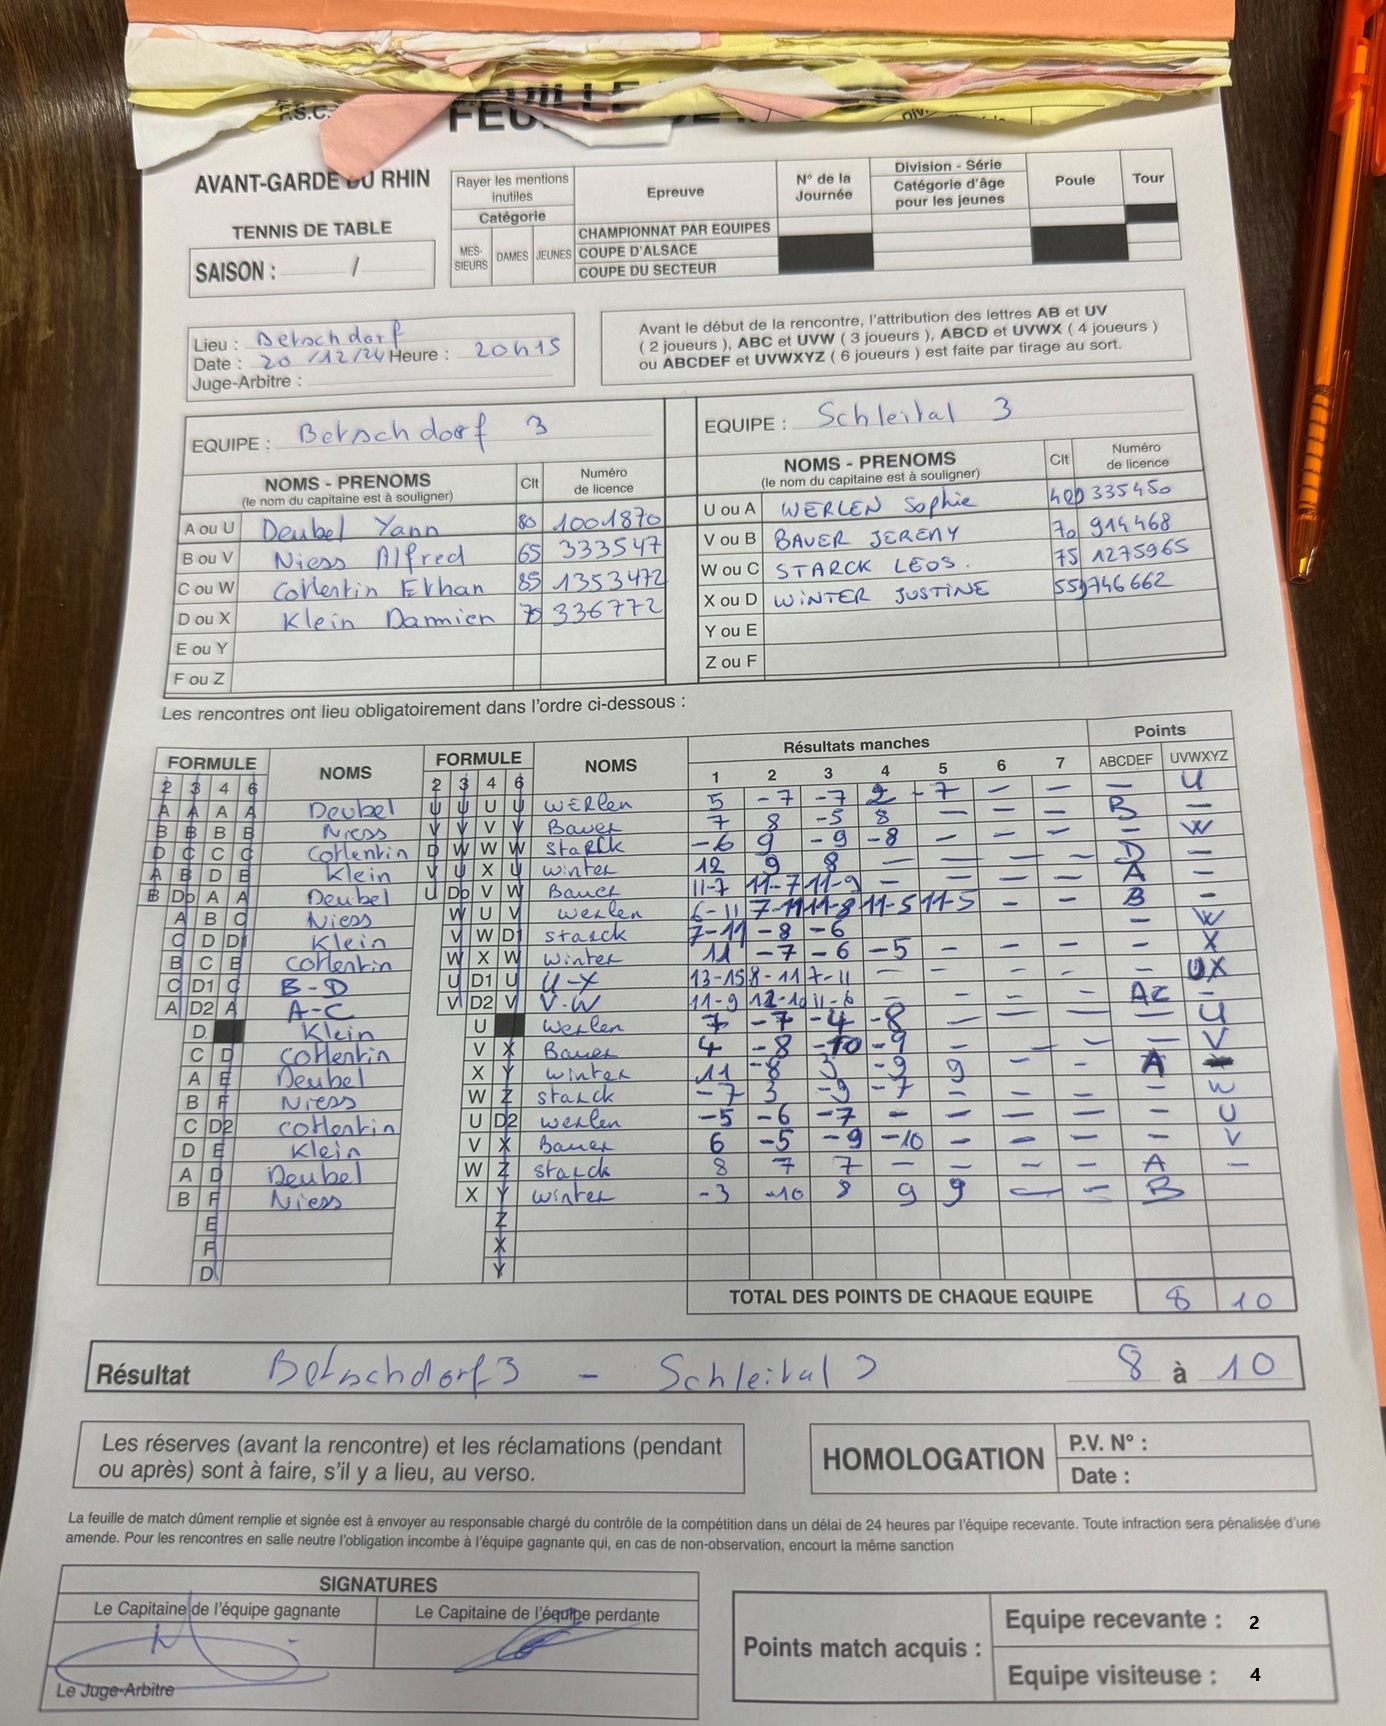 F.S.C.
FEUILLE DE
AVANT-GARDE DU RHIN
TENNIS DE TABLE
SAISON : /
Rayer les mentions inutiles
Catégorie
MES-SIEURS DAMES JEUNES
Epreuve
N° de la Journée
Division - Série
Catégorie d'âge pour les jeunes
Poule
Tour
CHAMPIONNAT PAR EQUIPES
COUPE D'ALSACE
COUPE DU SECTEUR
Lieu : Betschdorf
Date : 20/12/24 Heure : 20h15
Juge-Arbitre :
Avant le début de la rencontre, l'attribution des lettres AB et UV
( 2 joueurs ), ABC et UVW ( 3 joueurs ), ABCD et UVWX ( 4 joueurs )
ou ABCDEF et UVWXYZ ( 6 joueurs ) est faite par tirage au sort.
EQUIPE : Betschdorf 3
NOMS - PRENOMS (le nom du capitaine est à souligner) Clt Numéro de licence
A ou U Deubel Yann 80 1001870
B ou V Niess Alfred 65 333547
C ou W Cottentin Ethan 85 1353472
D ou X Klein Damien 70 336772
E ou Y
F ou Z
EQUIPE : Schleital 3
NOMS - PRENOMS (le nom du capitaine est à souligner) Clt Numéro de licence
U ou A WERLEN Sophie 335450
V ou B BAUER JEREMY 70 914468
W ou C STARCK LEOS. 75 1275965
X ou D WINTER JUSTINE 55 746662
Y ou E
Z ou F
Les rencontres ont lieu obligatoirement dans l'ordre ci-dessous :
FORMULE NOMS FORMULE NOMS Résultats manches Points
2 3 4 6 2 3 4 6 1 2 3 4 5 6 7 ABCDEF UVWXYZ
A A A A Deubel U U U U WERlen 5 -7 -7 2 -7 — — — U
B B B B Niess V V V V Bauer 7 8 -5 8 — — — B —
D C C C Cottentin D W W W StaRck -6 9 -9 -8 — — — — W
A B D E Klein V U X U winter 12 9 8 — — — — D —
B Db A A Deubel U Db V W Bauer 11-7 11-7 11-9 — — — — A —
A B C Niess W U V werlen 6-11 7-11 11-8 11-5 11-5 — — B —
C D D1 Klein V W D1 starck 7-11 -8 -6 — W
B C B Cottentin W X W winter 11 -7 -6 -5 — — — — X
C D1 C B-D U D1 U U-X 13-15 8-11 7-11 — — — — — UX
A D2 A A-C V D2 V V-W 11-9 12-10 11-6 — — — — AC —
D Klein U werlen 7 -7 -4 -8 — — — — U
C D Cottentin V X Bauer 4 -8 -10 -9 — — — — V
A E Deubel X Y winter 11 -8 3 -9 9 — — A
B F Niess W Z starck -7 3 -9 -7 — — — — W
C D2 Cottentin U D2 werlen -5 -6 -7 — — — — — U
D E Klein V X Bauer 6 -5 -9 -10 — — — — V
A D Deubel W Z starck 8 7 7 — — — — A —
B F Niess X Y winter -3 -10 8 9 9 — — B
E Z
F X
D Y
TOTAL DES POINTS DE CHAQUE EQUIPE 8 10
Résultat Betschdorf 3 - Schleital 3 8 à 10
Les réserves (avant la rencontre) et les réclamations (pendant
ou après) sont à faire, s'il y a lieu, au verso.
HOMOLOGATION
P.V. N° :
Date :
La feuille de match dûment remplie et signée est à envoyer au responsable chargé du contrôle de la compétition dans un délai de 24 heures par l'équipe recevante. Toute infraction sera pénalisée d'une
amende. Pour les rencontres en salle neutre l'obligation incombe à l'équipe gagnante qui, en cas de non-observation, encourt la même sanction
SIGNATURES
Le Capitaine de l'équipe gagnante Le Capitaine de l'équipe perdante
Le Juge-Arbitre
Points match acquis :
Equipe recevante : 2
Equipe visiteuse : 4